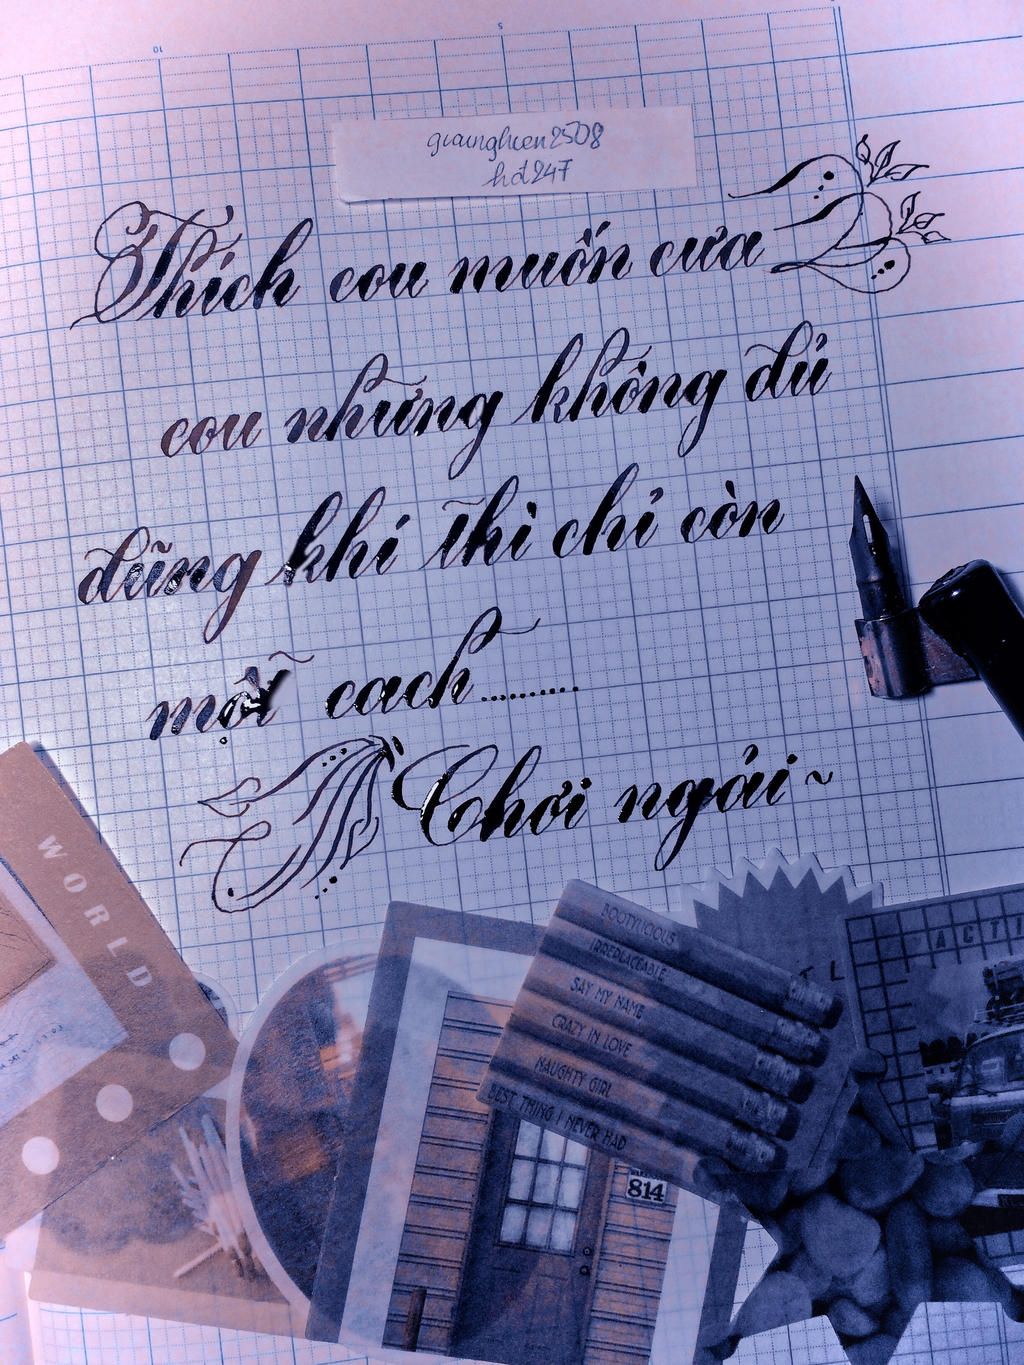 10
5
gianghien2508
hd247
Thích cou muốn cưa
cou nhưng không đủ
dũng khí thì chỉ còn
một cach.........
Chơi ngải~
WORLD
BOOTYLICIOUS
IRREPLACEABLE
SAY MY NAME
CRAZY IN LOVE
NAUGHTY GIRL
BEST THING I NEVER HAD
814
ACTI